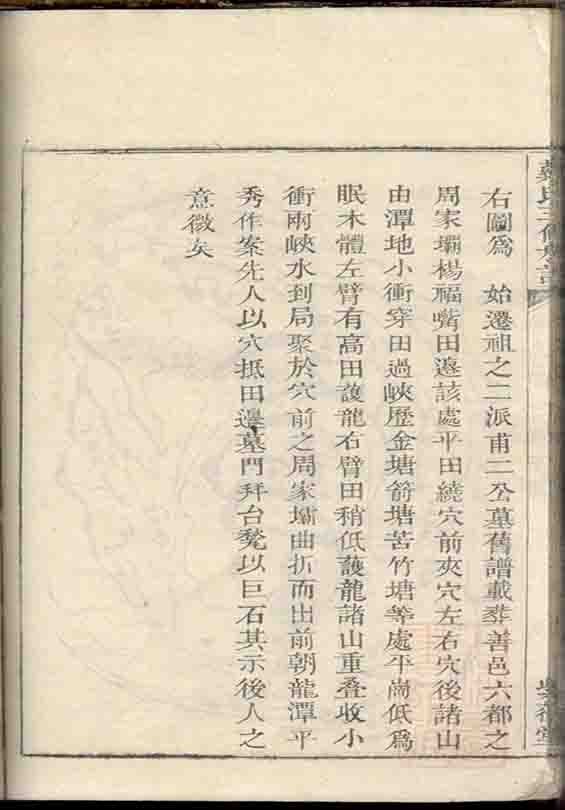 右圖爲　始遷祖之二派甫二公墓舊譜載葬善邑六都之
周家壩楊福嘴田邉該處平田繞穴前夾穴左右穴後諸山
由潭地小衝穿田過峽歷金塘箭塘苦竹塘等處平崗低爲
眠木體左臂有高田護龍右臂田稍低護龍諸山重叠收小
衝兩峽水到局聚於穴前之周家壩曲折而出前朝龍潭平
秀作案先人以穴抵田邉墓門拜台甃以巨石其示後人之
意微矣
氏三修